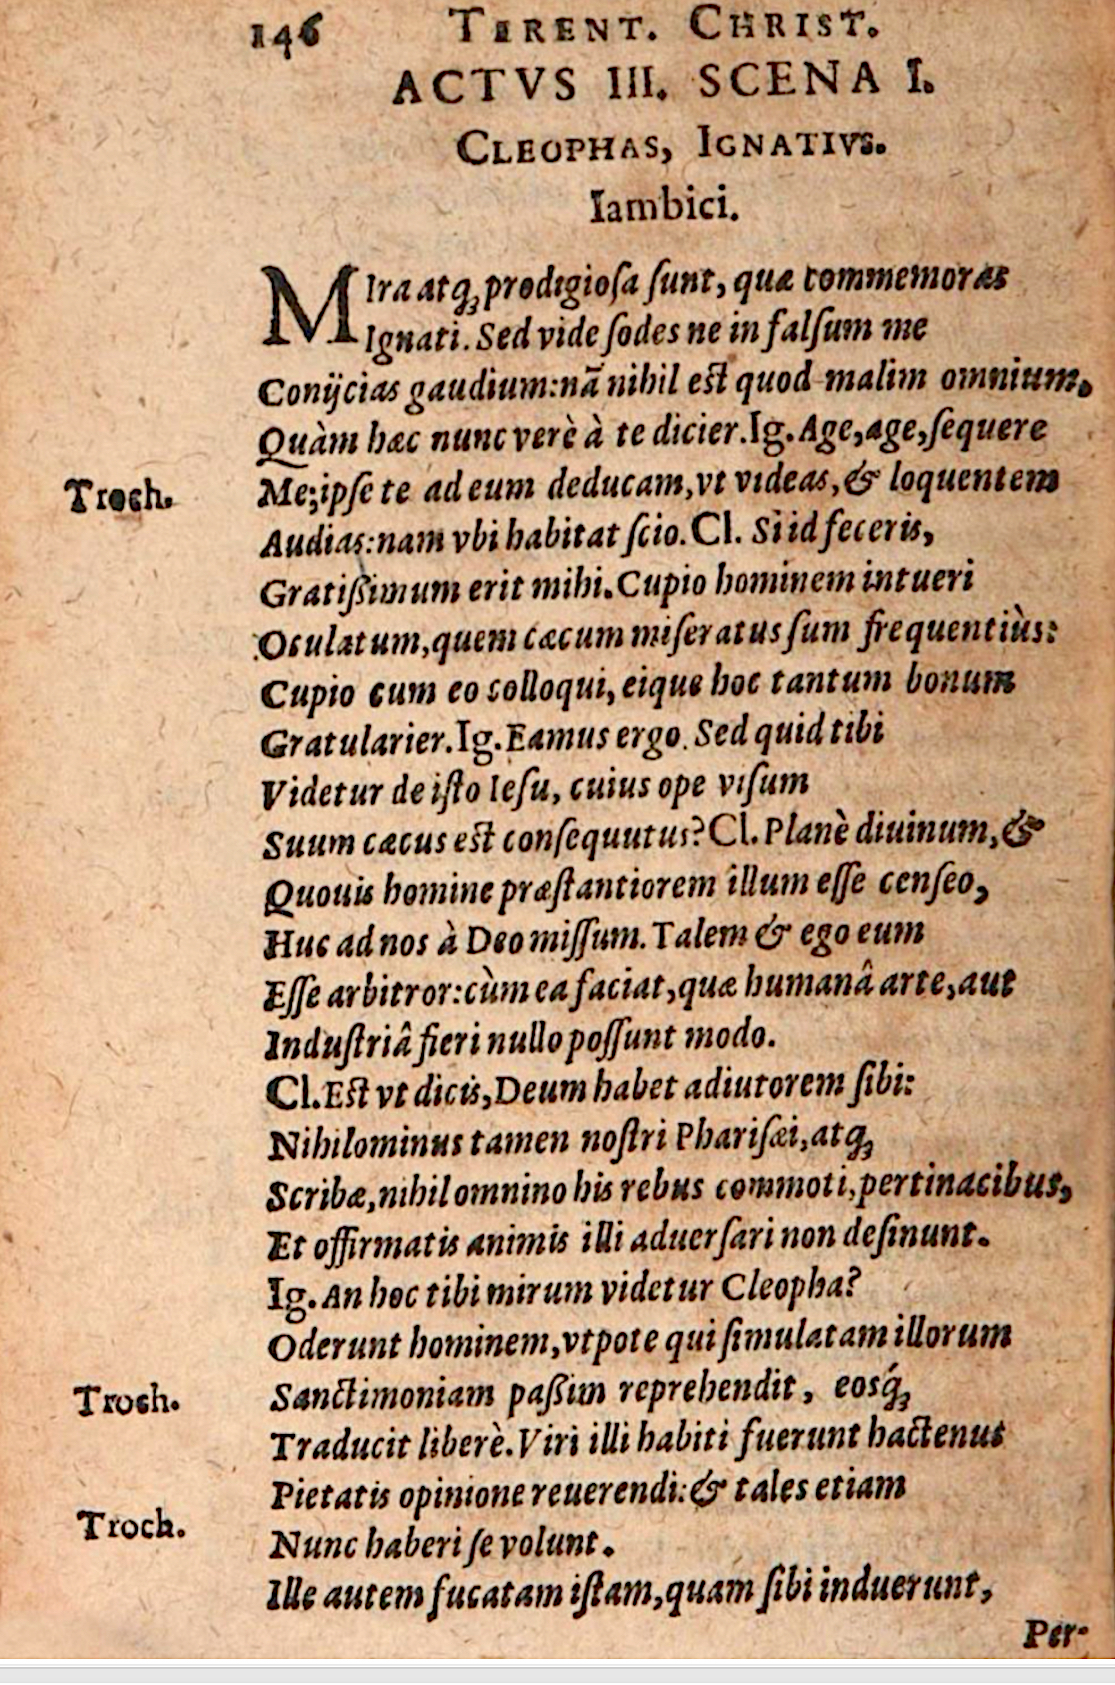 146 TERENT. CHRIST.
ACTVS III. SCENA I.
CLEOPHAS, IGNATIVS.
Iambici.
MIra atq́; prodigiosa sunt, quæ commemoras
Ignati. Sed vide sodes ne in falsum me
Conijcias gaudium: nã nihil est quod malim omnium,
Quàm hæc nunc verè à te dicier. Ig. Age, age, sequere
Troch. Me; ipse te ad eum deducam, vt videas, & loquentem
Audias: nam vbi habitat scio. Cl. Si id feceris,
Gratißimum erit mihi. Cupio hominem intueri
Oculatum, quem cæcum miseratus sum frequentiùs:
Cupio cum eo colloqui, eique hoc tantum bonum
Gratularier. Ig. Eamus ergo. Sed quid tibi
Videtur de isto Iesu, cuius ope visum
Suum cæcus est consequutus? Cl. Planè diuinum, &
Quouis homine præstantiorem illum esse censeo,
Huc ad nos à Deo missum. Talem & ego eum
Esse arbitror: cùm ea faciat, quæ humanâ arte, aut
Industriâ fieri nullo possunt modo.
Cl. Est vt dicis, Deum habet adiutorem sibi:
Nihilominus tamen nostri Pharisæi, atq;
Scribæ, nihil omnino his rebus commoti, pertinacibus,
Et offirmatis animis illi aduersari non desinunt.
Ig. An hoc tibi mirum videtur Cleopha?
Oderunt hominem, vtpote qui simulatam illorum
Troch. Sanctimoniam paßim reprehendit, eosq́;
Traducit liberè. Viri illi habiti fuerunt hactenus
Pietatis opinione reuerendi: & tales etiam
Troch. Nunc haberi se volunt.
Ille autem fucatam istam, quam sibi induerunt,
Per-